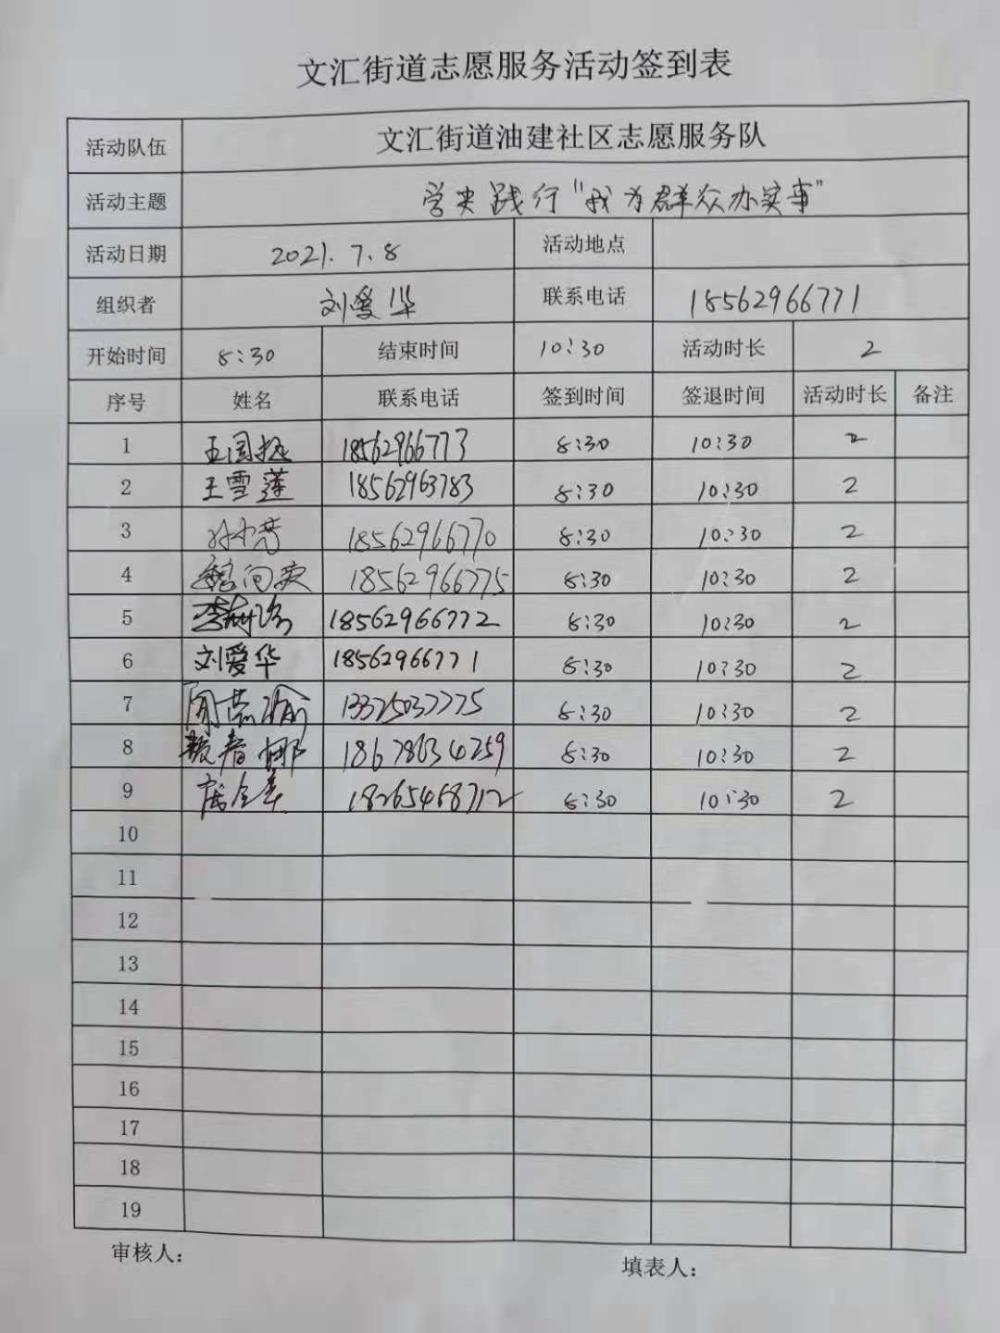 文汇街道志愿服务活动签到表
活动队伍 文汇街道油建社区志愿服务队
活动主题 学史践行"我为群众办实事"
活动日期 2021.7.8 活动地点
组织者 刘爱华 联系电话 18562966771
开始时间 8:30 结束时间 10:30 活动时长 2
序号 姓名 联系电话 签到时间 签退时间 活动时长 备注
1 18562966773 8:30 10:30 2
2 王雪莲 18562963783 8:30 10:30 2
3 18562966770 8:30 10:30 2
4 18562966775 8:30 10:30 2
5 18562966772 8:30 10:30 2
6 刘爱华 18562966771 8:30 10:30 2
7 13325037775 8:30 10:30 2
8 18678634259 8:30 10:30 2
9 18265468712 8:30 10:30 2
10
11
12
13
14
15
16
17
18
19
审核人: 填表人: